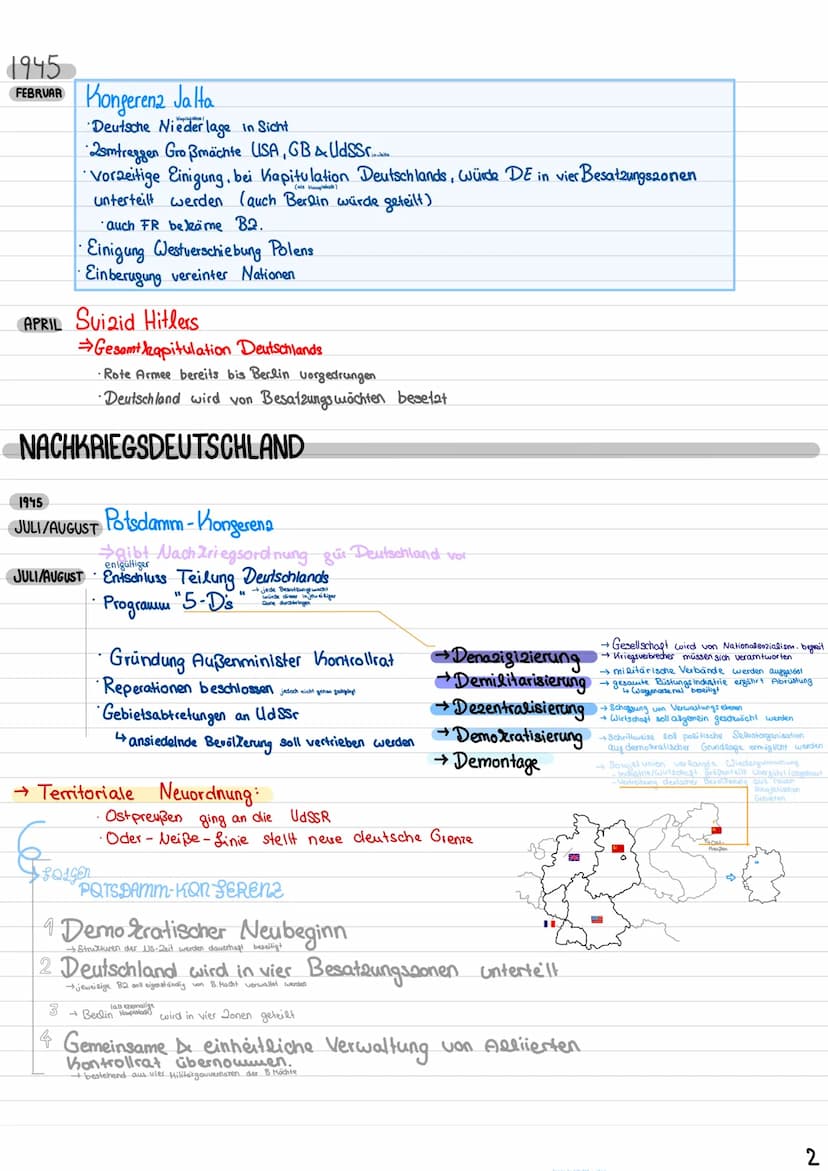 1945
FEBRUAR
Konferenz Jalta
· Deutsche Niederlage in Sicht
· Zsmtreffen Großmächte USA, GB & UdSSR in Jalta
· vorzeitige Einigung, bei Kapitulation Deutschlands, würde DE in vier Besatzungszonen
unterteilt werden (auch Berlin würde geteilt)
(als Hauptstadt)
· auch FR bekäme BZ.
· Einigung Westverschiebung Polens
· Einberufung vereinter Nationen
APRIL
Suizid Hitlers
⇒ Gesamtkapitulation Deutschlands
· Rote Armee bereits bis Berlin vorgedrungen
· Deutschland wird von Besatzungsmächten besetzt
NACHKRIEGSDEUTSCHLAND
1945
JULI/AUGUST
Potsdamm-Konferenz
⇒ gibt Nachkriegsordnung für Deutschland vor
JULI/AUGUST
entgültiger
· Entschluss Teilung Deutschlands
· Programm "5-D's"
→ jede Besatzungsmacht
würde dieser in jeweiliger
Zone durchbringen
· Gründung Außenminister Kontrollrat
· Reperationen beschlossen jedoch nicht genau festgelegt
· Gebietsabtretungen an UdSSR
↳ ansiedelnde Bevölkerung soll vertrieben werden
→ Denazifizierung
→ Gesellschaft wird von Nationalsozialism. befreit
→ Kriegsverbrecher müssen sich verantworten
→ Demilitarisierung
→ militärische Verbände werden aufgelöst
→ gesamte Rüstungsindustrie erfährt Abrüstung
↳ Waffenarsenal beseitigt
→ Dezentralisierung
→ Schaffung von Verwaltungsebenen
→ Wirtschaft soll allgemein geschwächt werden
→ Demokratisierung
→ Schrittweise soll politische Selbstorganisation
auf demokratischer Grundlage ermöglicht werden
→ Demontage
→ Sowjetunion verlangte Wiedergutmachung
- Industrie/Wirtschaft größtenteils
- Vertreibung deutscher Bevölkerung aus
Gebieten
→ Territoriale Neuordnung:
· Ostpreußen ging an die UdSSR
· Oder-Neiße-Linie stellt neue deutsche Grenze
FOLGEN
POTSDAMM-KONFERENZ
1 Demokratischer Neubeginn
→ Strukturen der NS-Zeit werden dauerhaft beseitigt
2 Deutschland wird in vier Besatzungszonen unterteilt
→ jeweilige BZ soll eigenständig von B.Macht verwaltet werden
3 → Berlin (als ehemalige Hauptstadt) wird in vier Zonen geteilt
4 Gemeinsame & einheitliche Verwaltung von Alliierten
Kontrollrat übernommen.
→ bestehend aus vier Militärgouverneuren der B.Mächte
2